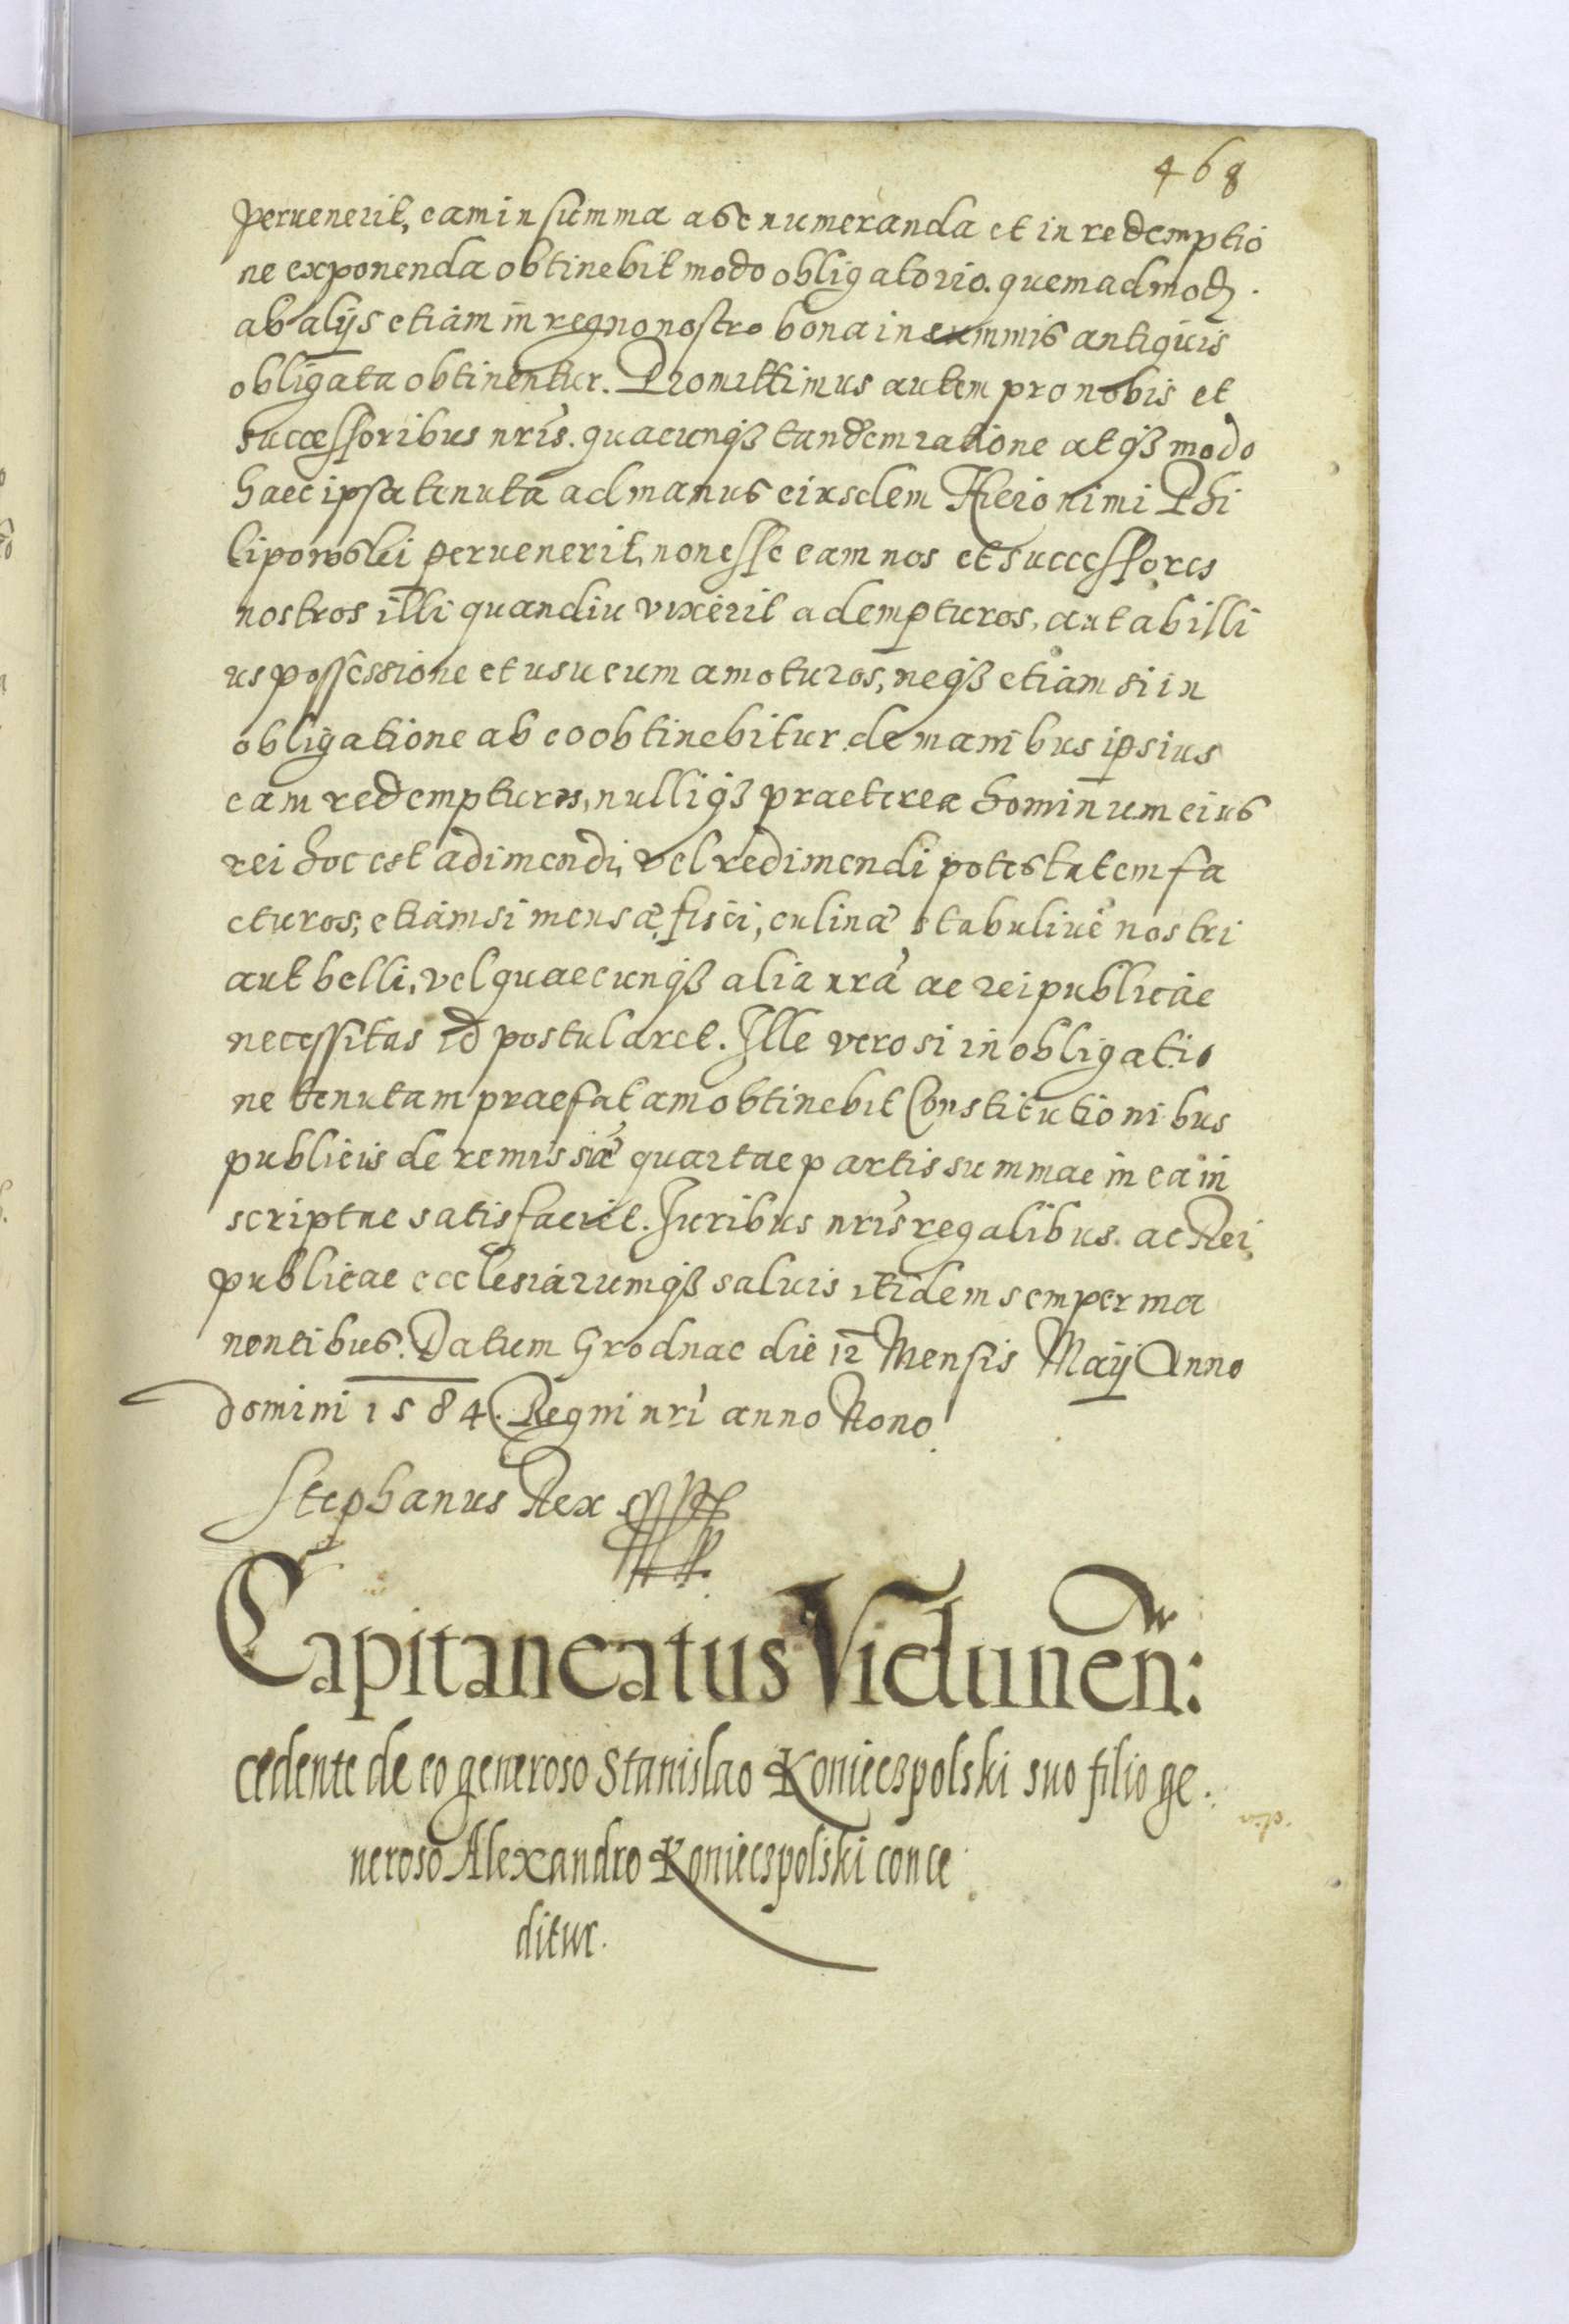 468
peruenerit, eam in summa a se numeranda et in redemptio
ne exponenda obtinebit modo obligatorio. quemadmodȝ.
ab alijs etiam in regno nostro bona in summis antiquis
obligata obtinentur. Promittimus autem pro nobis et
successoribus nr̃is. quacunqȝ tandem ratione atqȝ modo
haec ipsa tenuta ad manus eiusdem Hieronimi Phi
lipowski peruenerit, non esse eam nos et successores
nostros illi quandiu vixerit adempturos, aut ab illi
us possessione et usu eum amoturos, neqȝ etiam si in
obligatione ab eo obtinebitur de manibus ipsius
eam redempturos, nulliqȝ praeterea hominum eius
rei hoc est adimendi, vel redimendi potestatem fa
cturos, etiamsi mensæ, fisci, culinæ stabuliue nostri
aut belli, vel quaecunqȝ alia nr̃a ac reipublicae
necessitas id postularet. Ille vero si in obligatio
ne tenutam praefatam obtinebit Constitutionibus
publicis de remissiõe quartae partis summae in ea in
scriptae satisfaciet. Iuribus nr̃is regalibus. ac Rei
publicae ecclesiarumqȝ saluis itidem semper ma
nentibus. Datum Grodnae die 12 Mensis Maij Anno
domini 1584. Regni nr̃i anno Nono.
Stephanus Rex
Capitaneatus Vielunen̄:
cedente de eo generoso Stanislao Koniecspolski suo filio ge.
neroso Alexandro Koniecspolski conce
ditur.